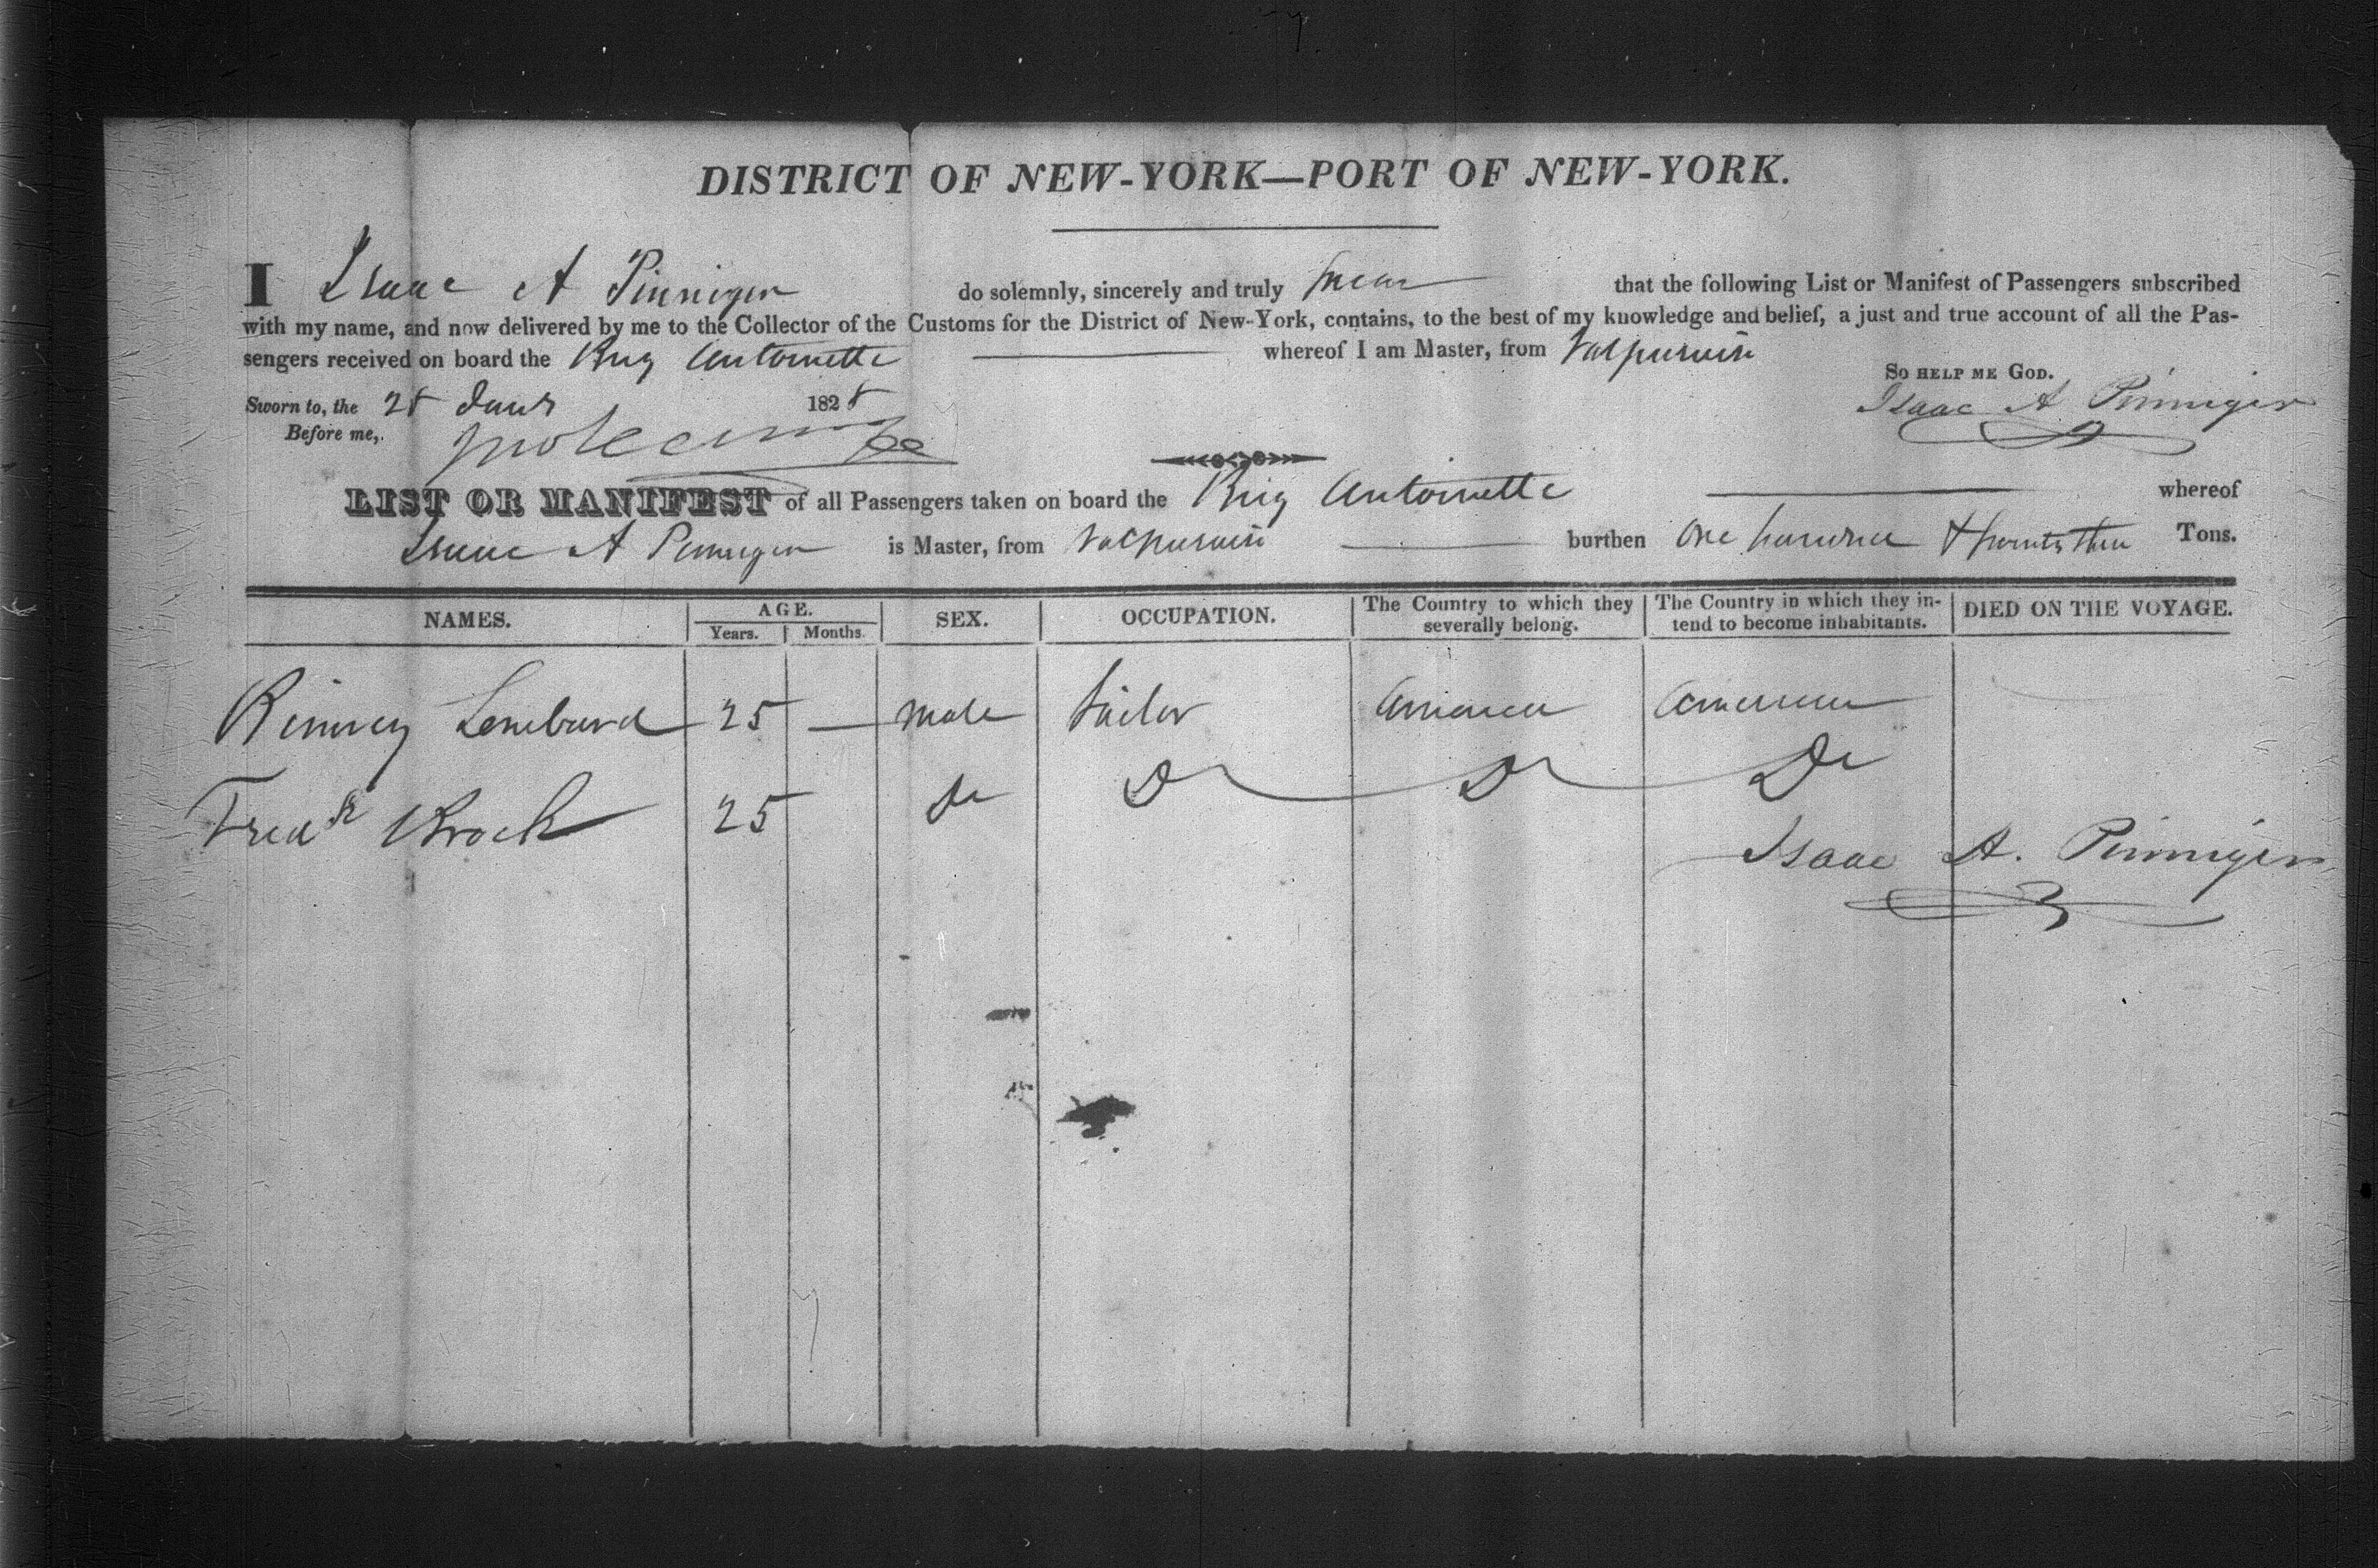 DISTRICT OF NEW-YORK—PORT OF NEW-YORK.
I Isaac A Pinniger do solemnly, sincerely and truly swear that the following List or Manifest of Passengers subscribed
with my name, and now delivered by me to the Collector of the Customs for the District of New-York, contains, to the best of my knowledge and belief, a just and true account of all the Pas-
sengers received on board the Brig Antoinette whereof I am Master, from Valparaiso
So HELP ME GOD.
Sworn to, the 28 Jany 1828
Isaac A Pinniger
Before me,
LIST OR MANIFEST of all Passengers taken on board the Brig Antoinette whereof
Isaac A Pinniger is Master, from Valparaiso burthen One hundred & twenty three Tons.
NAMES. AGE. Years. Months. SEX. OCCUPATION. The Country to which they severally belong. The Country in which they in-tend to become inhabitants. DIED ON THE VOYAGE.
Lombard 25 — male Sailor America America
Fredk Brock 25 Do Do Do Do
Isaac A. Pinniger